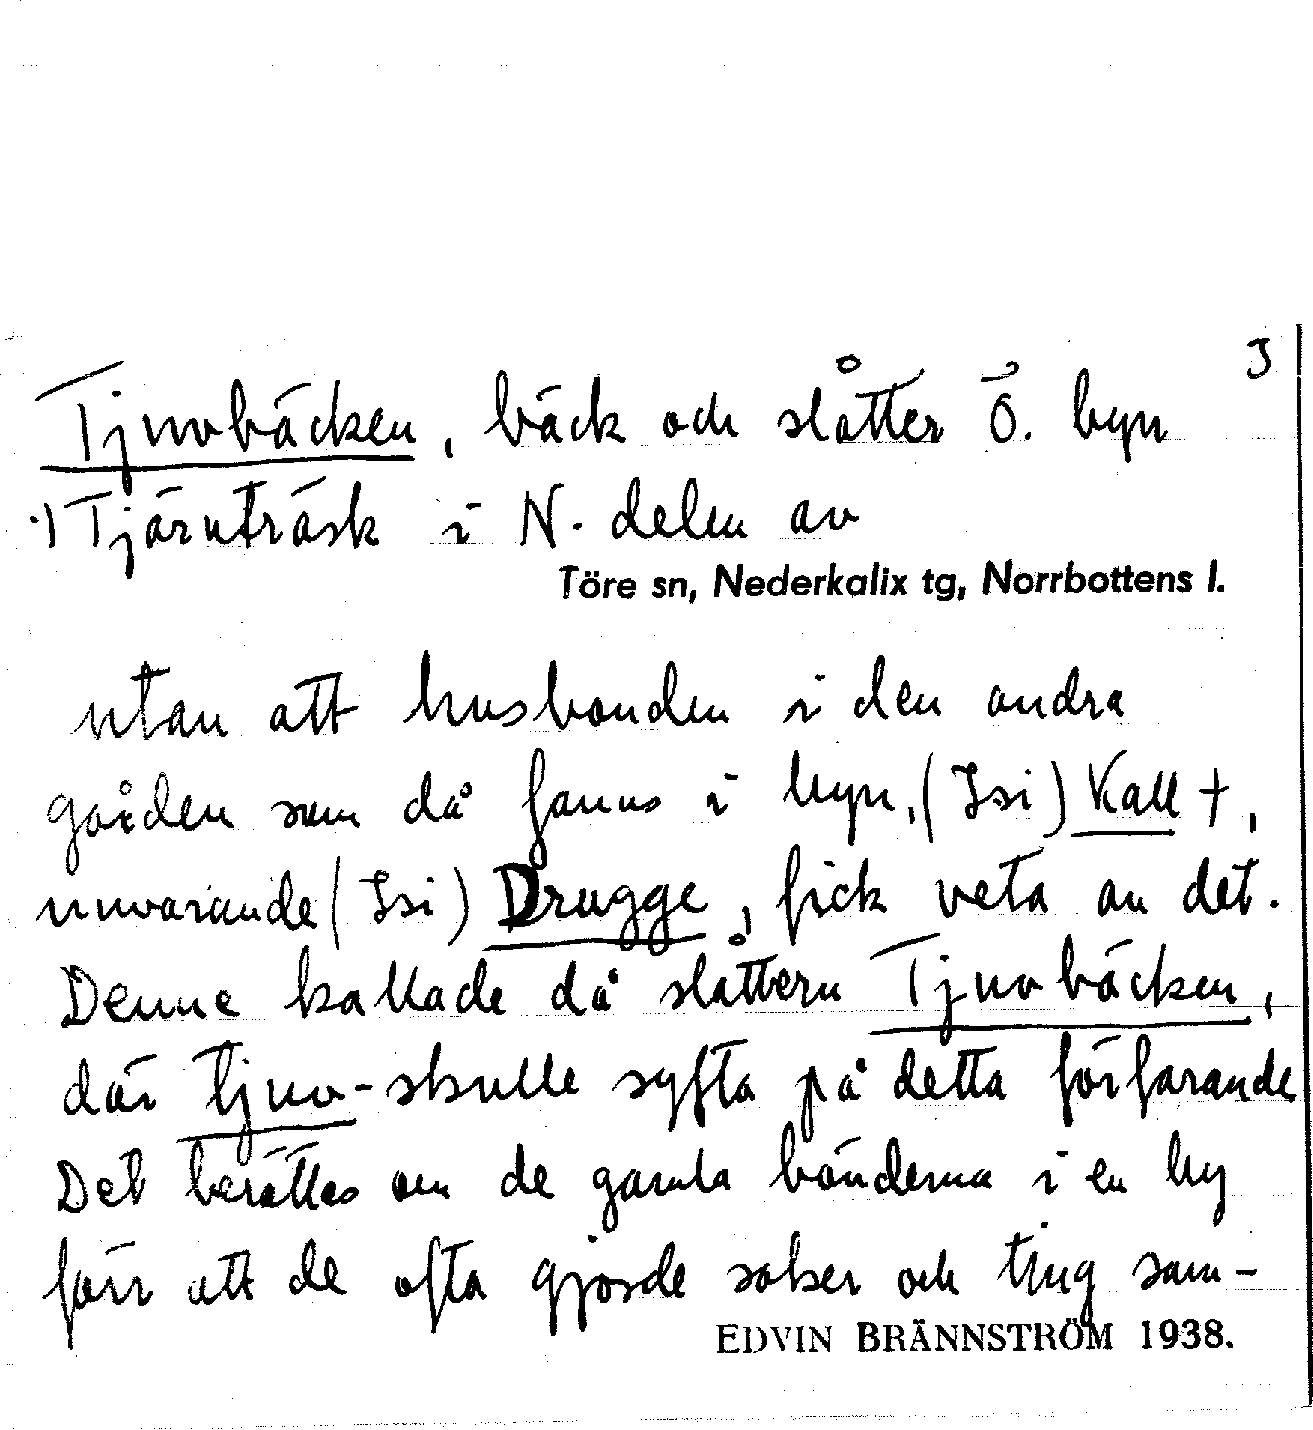 3
Tjuvbäcken, bäck och slåtter Ö. byn
·) Tjärnträsk i N. delen av
Töre sn, Nederkalix tg, Norrbottens l.
utan att husbonden i den andra
gården som då fanns i byn, (Isi) Kall †,
nuvarande (Isi) Drugge, fick veta av det.
Denne kallade då slåttern Tjuvbäcken,
där tjuv- skulle syfta på detta förfarande
Det berättas om de gamla bönderna i en by
förr att de ofta gjorde saker och ting sam-
EDVIN BRÄNNSTRÖM 1938.